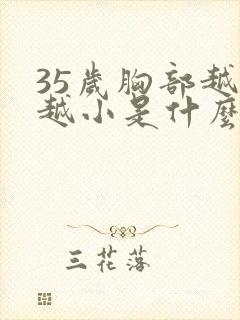 35歲胸部越
越小是什麼
三花落